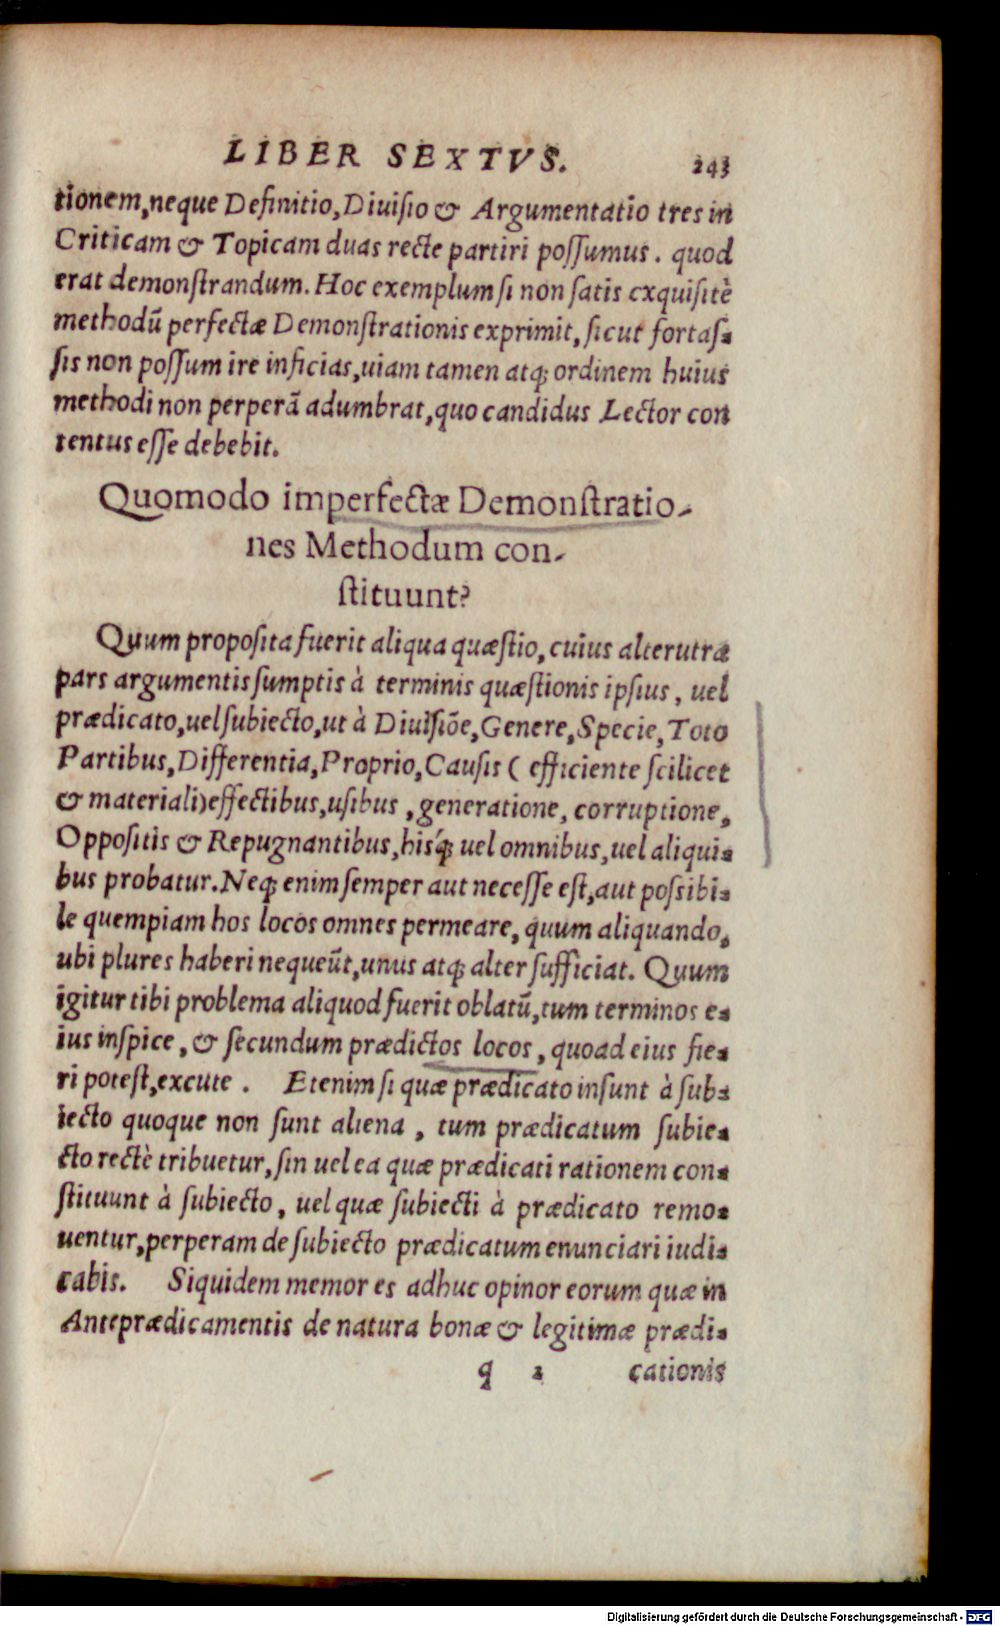 LIBER SEXTVS. 243
tionem,neque Definitio,Diuiſio & Argumentatio tres in
Criticam & Topicam duas recte partiri poſſumus. quod
erat demonſtrandum. Hoc exemplum ſi non ſatis cxquiſitè
methodū perfectæ Demonſtrationis exprimit, ſicut fortaſ-
ſis non poſſum ire inficias,uiam tamen atq; ordinem huius
methodi non perperā adumbrat,quo candidus Lector con
tentus eſſe debebit.
Quomodo imperfectæ Demonſtratio-
nes Methodum con-
ſtituunt?
Quum propoſita fuerit aliqua quæſtio, cuius alterutra
pars argumentis ſumptis à terminis quæſtionis ipſius, uel
prædicato,uel ſubiecto,ut à Diuiſiōe,Genere,Specie,Toto
Partibus,Differentia,Proprio,Cauſis ( efficiente ſcilicet
& materiali)effectibus,uſibus ,generatione, corruptione,
Oppoſitis & Repugnantibus,hiſq́; uel omnibus,uel aliqui-
bus probatur.Neq; enim ſemper aut neceſſe eſt,aut poſsibi-
le quempiam hos locos omnes permeare, quum aliquando,
ubi plures haberi nequeūt,unus atq; alter ſufficiat. Quum
igitur tibi problema aliquod fuerit oblatū,tum terminos e-
ius inſpice , & ſecundum prædictos locos , quoad eius fie-
ri poteſt,excute . Etenim ſi quæ prædicato inſunt à ſub-
iecto quoque non ſunt aliena , tum prædicatum ſubie-
cto rectè tribuetur,ſin uel ea quæ prædicati rationem con-
ſtituunt à ſubiecto, uel quæ ſubiecti à prædicato remo-
uentur,perperam de ſubiecto prædicatum enunciari iudi-
cabis. Siquidem memor es adhuc opinor eorum quæ in
Anteprædicamentis de natura bonæ & legitimæ prædi-
q 2 cationis
Digitalisierung gefördert durch die Deutsche Forschungsgemeinschaft - DFG